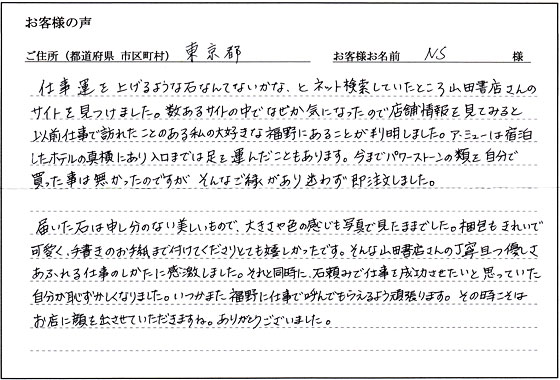 お客様の声
ご住所（都道府県 市区町村） 東京都 お客様お名前 NS 様
仕事運を上げるような石なんてないかな、とネット検索していたところ山田書店さんの
サイトを見つけました。数あるサイトの中でなぜか気になったので店舗情報を見てみると
以前仕事で訪れたことのある私の大好きな福野にあることが判明しました。ア・ミューは宿泊
したホテルの真横にあり入口までは足を運んだこともあります。今までパワーストーンの類を自分で
買った事は無かったのですが そんなご縁があり迷わず即注文しました。
届いた石は申し分のない美しいもので、大きさや色の感じも写真で見たままでした。梱包もきれいで
可愛く、手書きのお手紙まで付けてくださりとても嬉しかったです。そんな山田書店さんの丁寧且つ優しさ
あふれる仕事のしかたに感激しました。それと同時に、石頼みで仕事を成功させたいと思っていた
自分が恥ずかしくなりました。いつかまた福野に仕事で呼んでもらえるよう頑張ります。その時こそは
お店に顔を出させていただきますね。ありがとうございました。